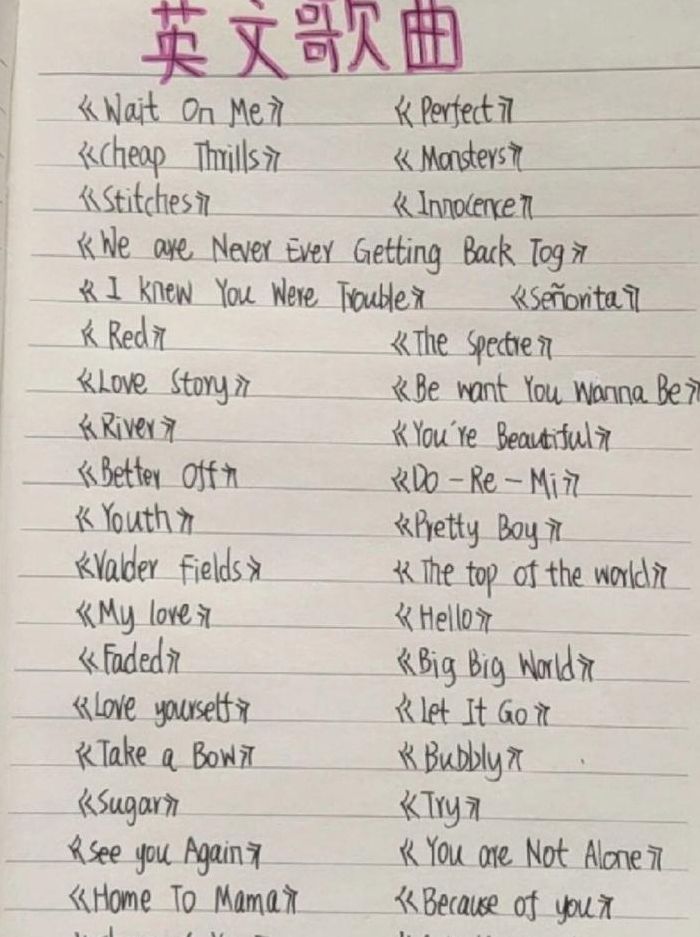 英文歌曲
《Wait On Me》 《Perfect》
《Cheap Thrills》 《Monsters》
《Stitches》 《Innocence》
《We are Never Ever Getting Back Tog》
《I knew You Were Trouble》 《Señorita》
《Red》 《The Spectre》
《Love Story》 《Be want You Wanna Be》
《River》 《You're Beautiful》
《Better Off》 《Do-Re-Mi》
《Youth》 《Pretty Boy》
《Valder Fields》 《The top of the world》
《My love》 《Hello》
《Faded》 《Big Big World》
《Love yourself》 《Let It Go》
《Take a Bow》 《Bubbly》
《Sugar》 《Try》
《See you Again》 《You are Not Alone》
《Home To Mama》 《Because of you》